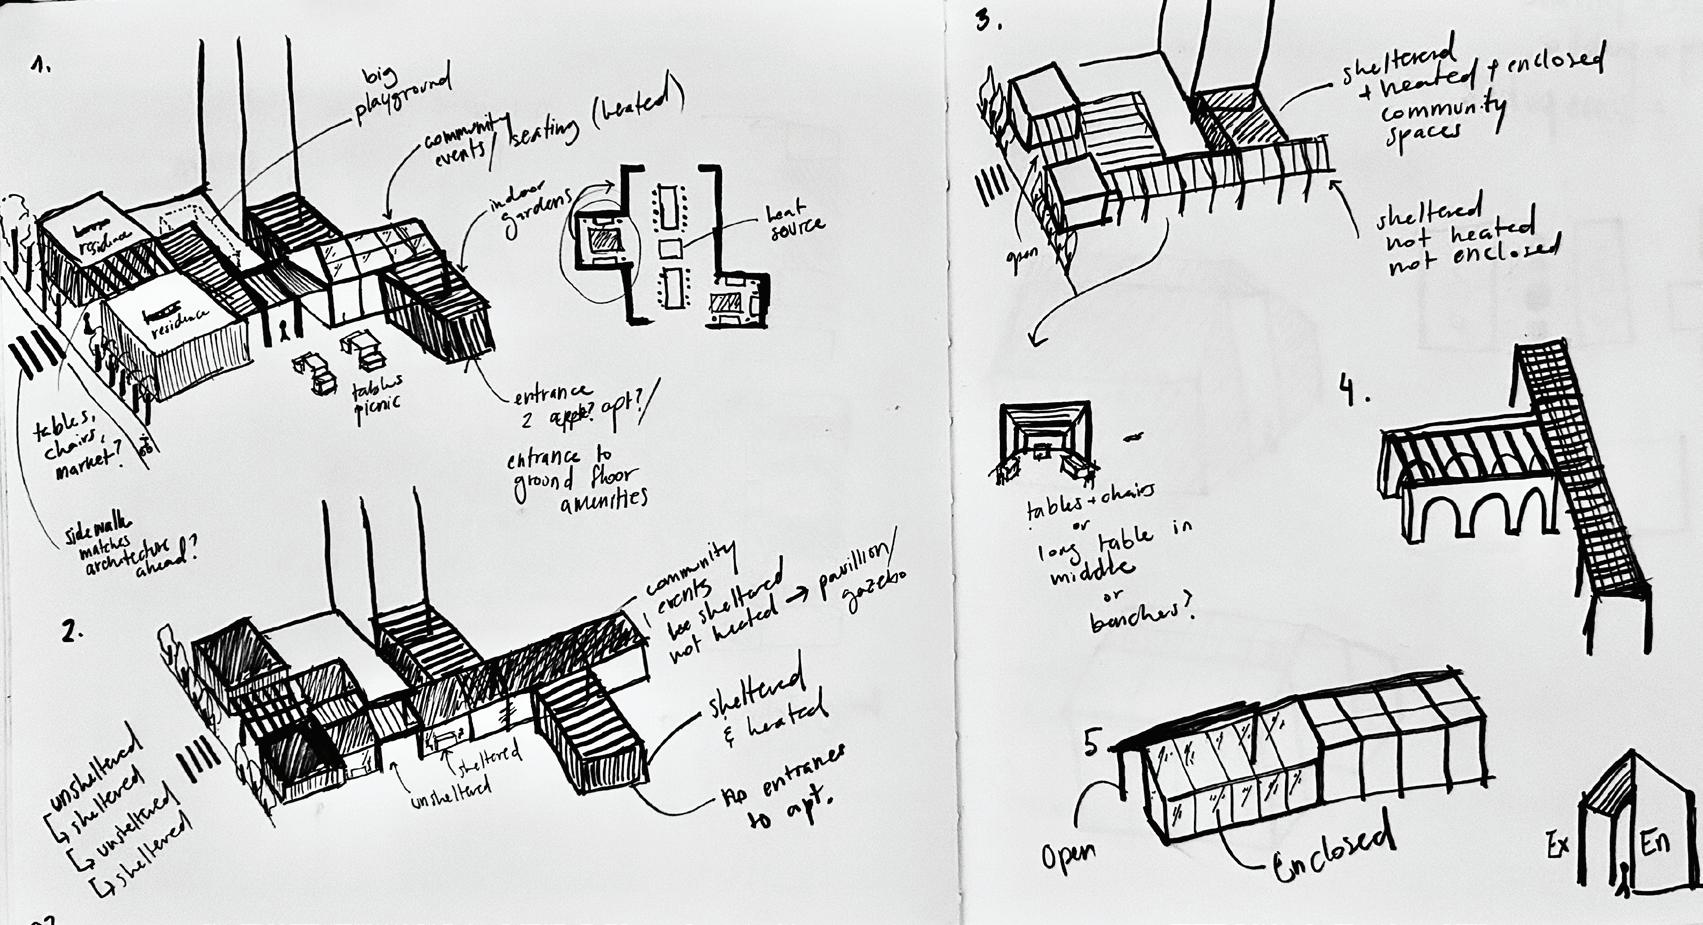 1.
big
playground
community
events/ seating (heated)
indoor
gardens
heat
source
residence
residence
tables
picnic
entrance
2 apt?/
entrance to
ground floor
amenities
tables,
chairs,
market?
sidewalk
matches
architecture
ahead?
2.
community
events
sheltered
not heated → pavillion/
gazebo
sheltered
& heated
no entrance
to apt.
sheltered
unsheltered
unsheltered
↳ sheltered
↳ unsheltered
↳ sheltered
3.
sheltered
+ heated + enclosed
community
spaces
sheltered
not heated
not enclosed
open
tables + chairs
or
long table in
middle
or
benches?
4.
5.
Open
Enclosed
Ex
En